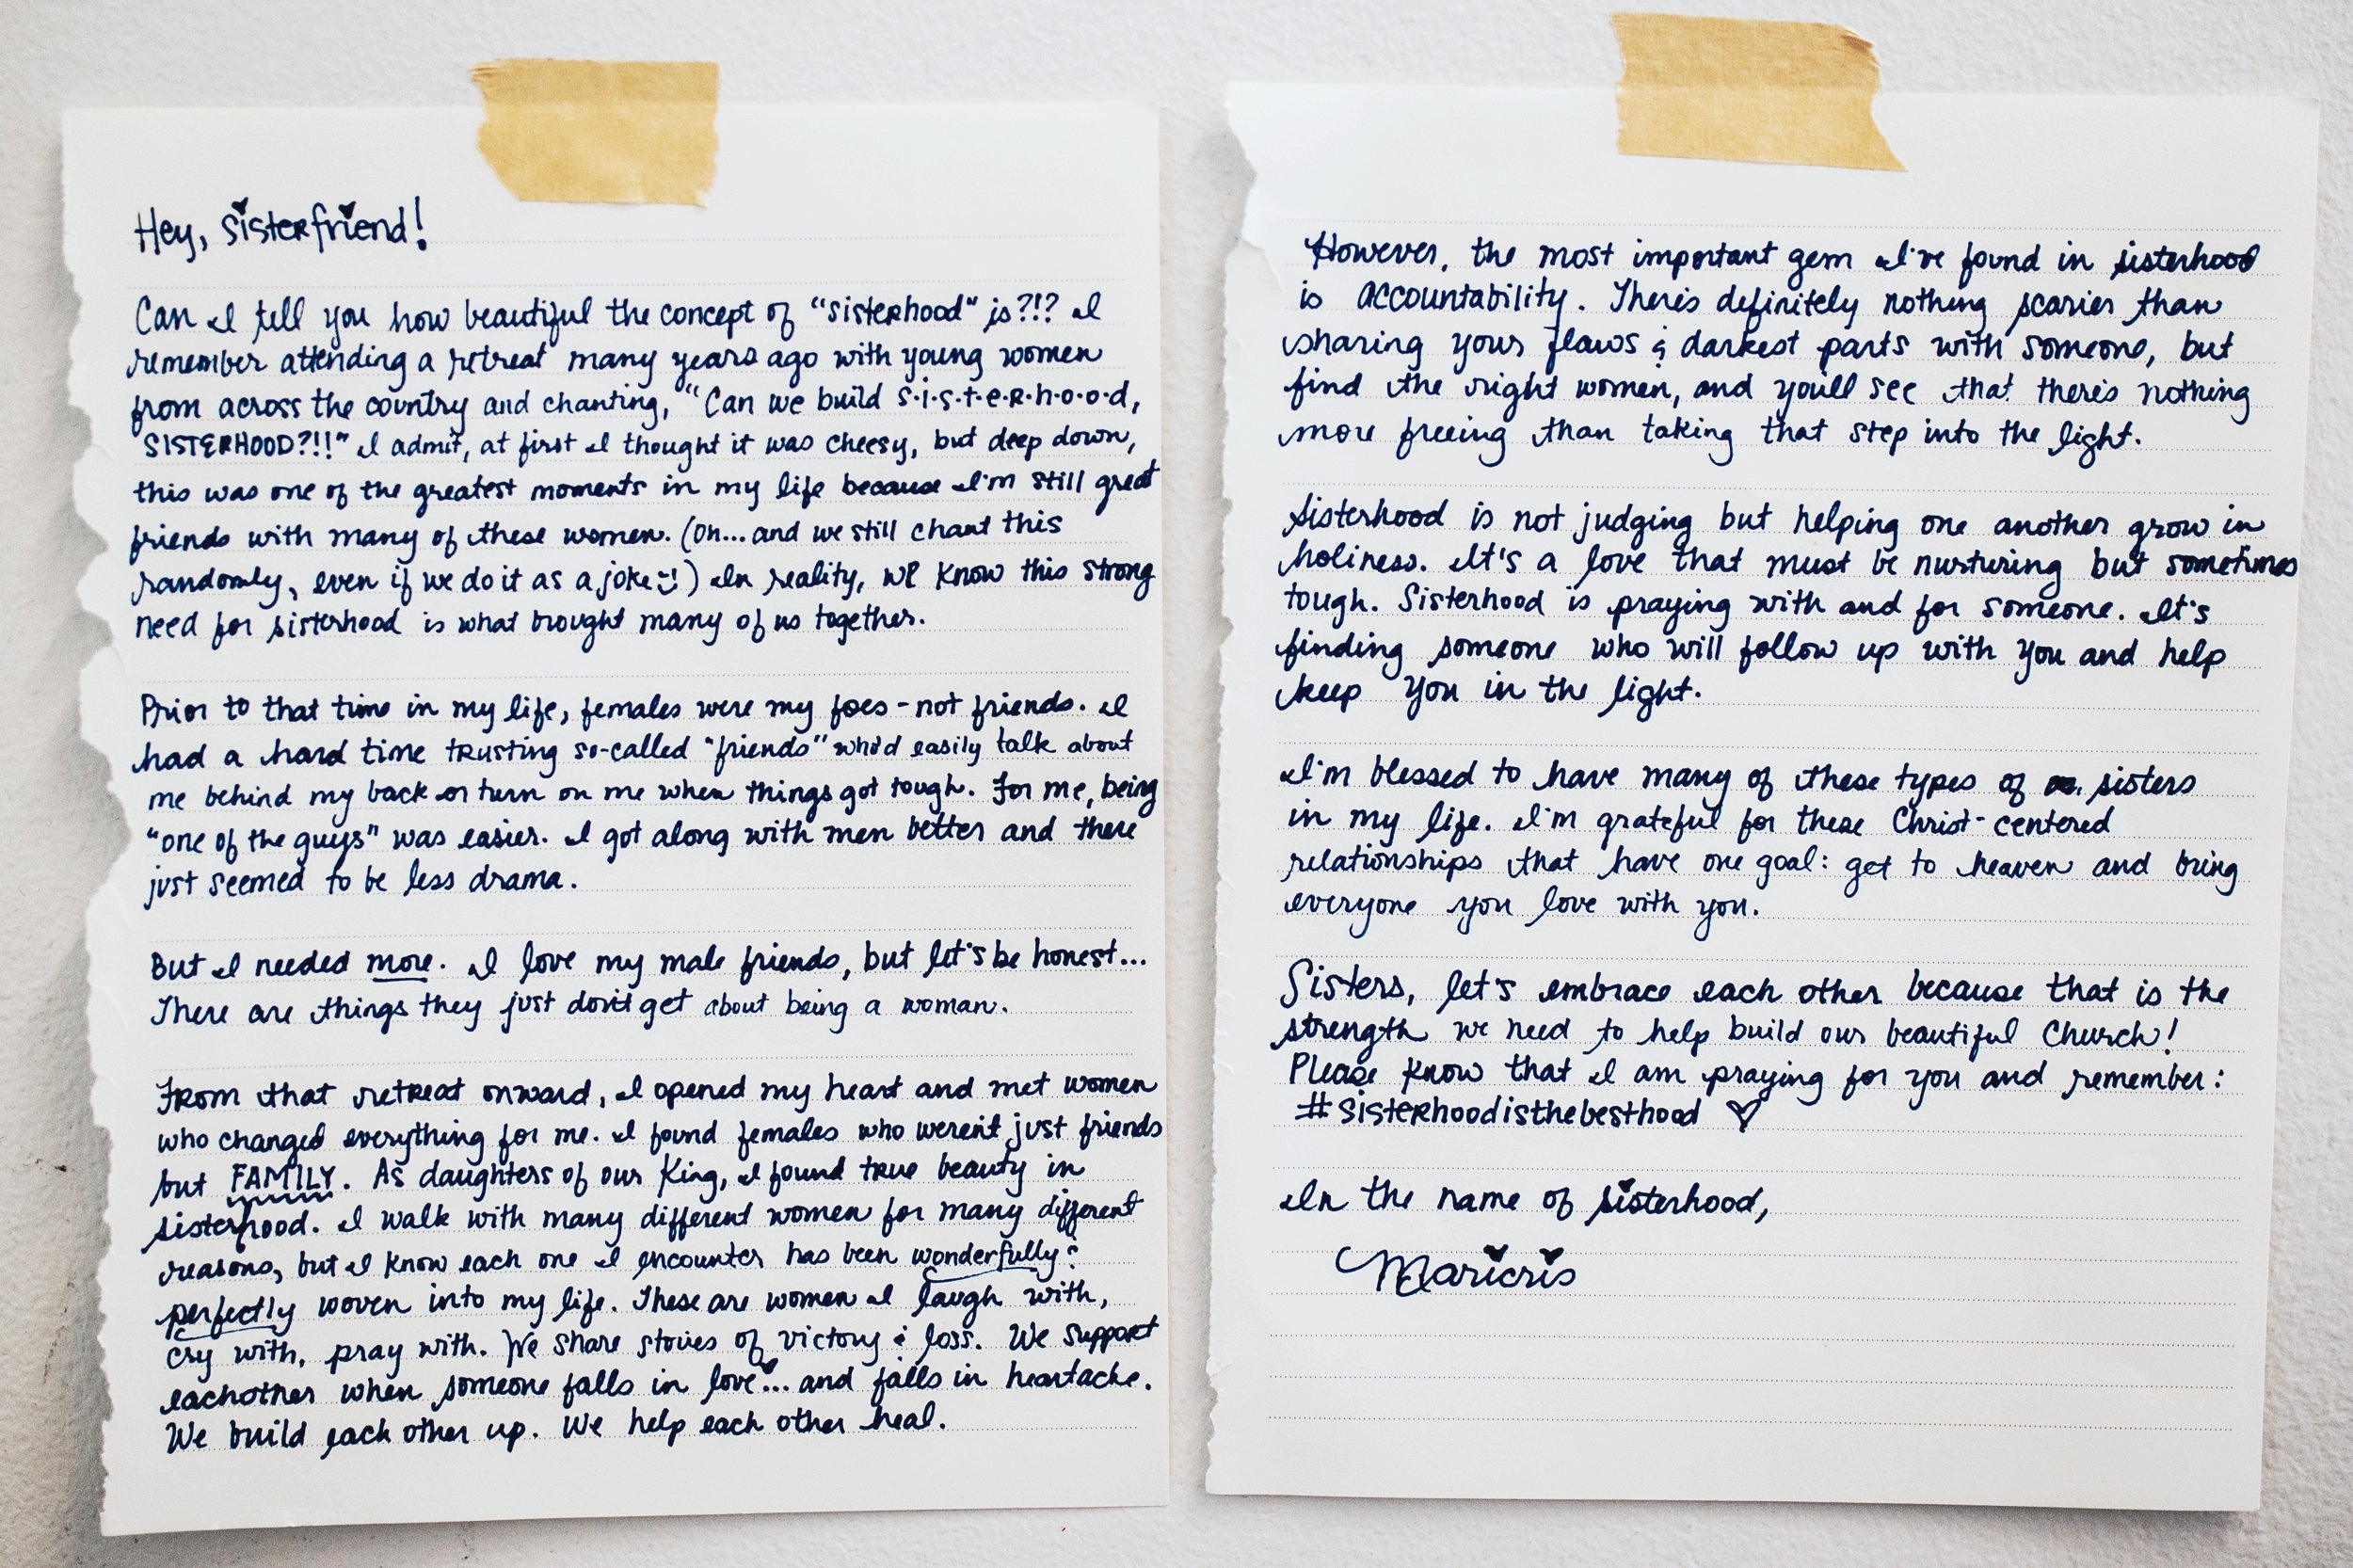 Hey, sisterfriend!
Can I tell you how beautiful the concept of "sisterhood" is?!? I
remember attending a retreat many years ago with young women
from across the country and chanting, "Can we build s·i·s·t·e·r·h·o·o·d,
SISTERHOOD?!!" I admit, at first I thought it was cheesy, but deep down,
this was one of the greatest moments in my life because I'm still great
friends with many of these women. (Oh... and we still chant this
randomly, even if we do it as a joke :)) In reality, we know this strong
need for sisterhood is what brought many of us together.
Prior to that time in my life, females were my foes - not friends. I
had a hard time trusting so-called "friends" who'd easily talk about
me behind my back or turn on me when things got tough. For me, being
"one of the guys" was easier. I got along with men better and there
just seemed to be less drama.
But I needed more. I love my male friends, but let's be honest...
There are things they just don't get about being a woman.
From that retreat onward, I opened my heart and met women
who changed everything for me. I found females who weren't just friends
but FAMILY. As daughters of our King, I found true beauty in
sisterhood. I walk with many different women for many different
reasons, but I know each one I encounter has been wonderfully &
perfectly woven into my life. These are women I laugh with,
cry with, pray with. We share stories of victory & loss. We support
eachother when someone falls in love♥... and falls in heartache.
We build each other up. We help each other heal.
However, the most important gem I've found in sisterhood
is accountability. There's definitely nothing scarier than
sharing your flaws & darkest parts with someone, but
find the right women, and you'll see that there's nothing
more freeing than taking that step into the light.
Sisterhood is not judging but helping one another grow in
holiness. It's a love that must be nurturing but sometimes
tough. Sisterhood is praying with and for someone. It's
finding someone who will follow up with you and help
keep you in the light.
I'm blessed to have many of these types of sisters
in my life. I'm grateful for these Christ-centered
relationships that have one goal: get to heaven and bring
everyone you love with you.
Sisters, let's embrace each other because that is the
strength we need to help build our beautiful Church!
Please know that I am praying for you and remember:
#sisterhoodisthebesthood ♡
In the name of sisterhood,
Maricris